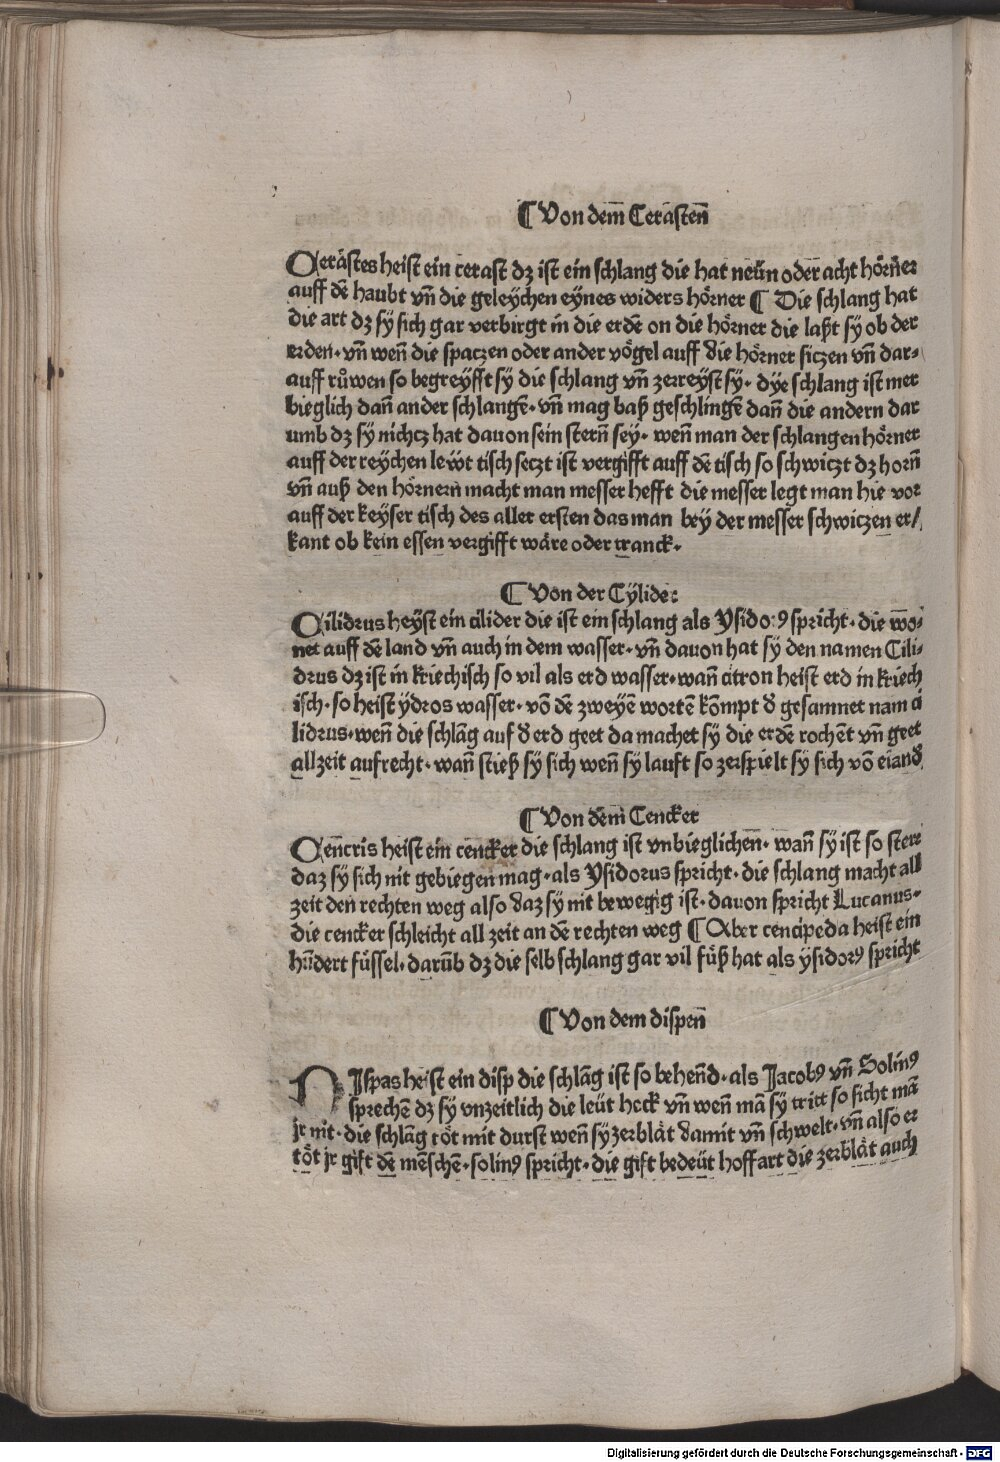 ¶ Von dem̄ Cerästen̄
Cerästes heist ein cerast dz ist ein schlang die hat neün oder acht hörn̄er
auff dē haubt vn̄ die geleÿchen eÿnes widers hörner ¶ Die schlang hat
die art dz sÿ sich gar verbirgt in die erdē on die hörner die laßt sÿ ob der
erden · vn̄ wen̄ die spaczen oder ander vögel auff die hörner siczen vn̄ dar⸗
auff růwen so begreÿfft sÿ die schlang vn̄ zerreÿst sÿ · dÿe schlang ist mer
bieglich dan̄ ander schlangē · vn̄ mag baß geschlingē dan̄ die andern dar
umb dz sÿ nichcz hat davon sein stern̄ seÿ · wen̄ man der schlangen hörner
auff der reÿchen leẅt tisch seczt ist vergifft auff dē tisch so schwiczt dz horn̄
vn̄ auß den hörnern macht man messer hefft die messer legt man hie vor
auff der keÿser tisch des aller ersten das man beÿ der messer schwiczen er/
kant ob kein essen vergifft wäre oder tranck ·
¶ Von der Cÿlide :
Cilidrus heÿst ein cilider die ist ein schlang als Ysidorꝰ spricht · die wo̅⸗
net auff dē land vn̄ auch in dem wasser · vn̄ davon hat sÿ den namen Cili⸗
drus dz ist in kriechisch so vil als erd wasser · wan̄ citron heist erd in kriech
isch · so heist ÿdros wasser · vō dē zweÿē wortē kōmpt d̄ gesamnet nam ci
lidrus · wen̄ die schlāg auf d̄ erd geet da machet sÿ die erdē rochēt vn̄ geet
allzeit aufrecht · wan̄ stieß sÿ sich wen̄ sÿ lauft so zerspielt sÿ sich vō eiand̄
¶ Von dem̄ Cencker
Cen̄cris heist ein cencker die schlang ist vnbieglichen̄ · wan̄ sÿ ist so sterr
daz sÿ sich nit gebiegen mag · als Ysidorus spricht · die schlang macht all
zeit den rechten weg also daz sÿ nit bewegig ist · davon spricht Lucanus ·
die cencker schleicht all zeit an dē rechten weg ¶ Aber cencipeda heist ein
hūdert füssel · darūb dz die selb schlang gar vil füß hat als ÿsidorꝰ spricht
¶ Von dem dispen̄
DIspas heist ein disp die schlāg ist so behen̄d · als Jacobꝰ vn̄ Solinꝰ
sprechē dz sÿ vnzeitlich die leüt heck vn̄ wen̄ mā sÿ tritt so sicht mā
jr nit · die schlāg töt mit durst wen̄ sÿ zerblät damit vn̄ schwelt · vn̄ also er
töt jr gift dē mēschē · solinꝰ spricht · die gift bedeüt hoffart die zerblät auch
Digitalisierung gefördert durch die Deutsche Forschungsgemeinschaft - DFG